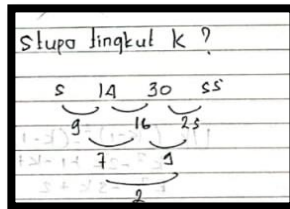 Stupa tingkat k ?
5 14 30 55
9 16 25
7 9
2